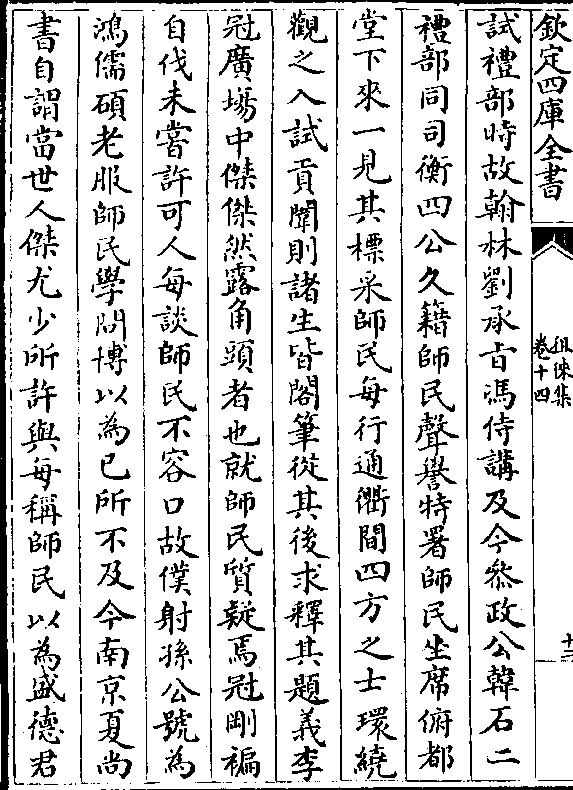 欽定四庫全書
徂徠集
卷十四
十三
試禮部時故翰林劉承㫖馮侍講及今叅政公韓石二
禮部同司衡四公久籍師民聲譽特署師民坐席俯都
堂下來一見其標采師民每行通衢間四方之士環繞
觀之入試貢闈則諸生皆閣筆從其後求釋其題義李
冠廣場中傑傑然露角頭者也就師民質疑焉冠剛褊
自伐未嘗許可人每談師民不容口故僕射孫公號為
鴻儒碩老服師民學問博以為已所不及今南京夏尚
書自謂當世人傑尤少所許與每稱師民以為盛德君